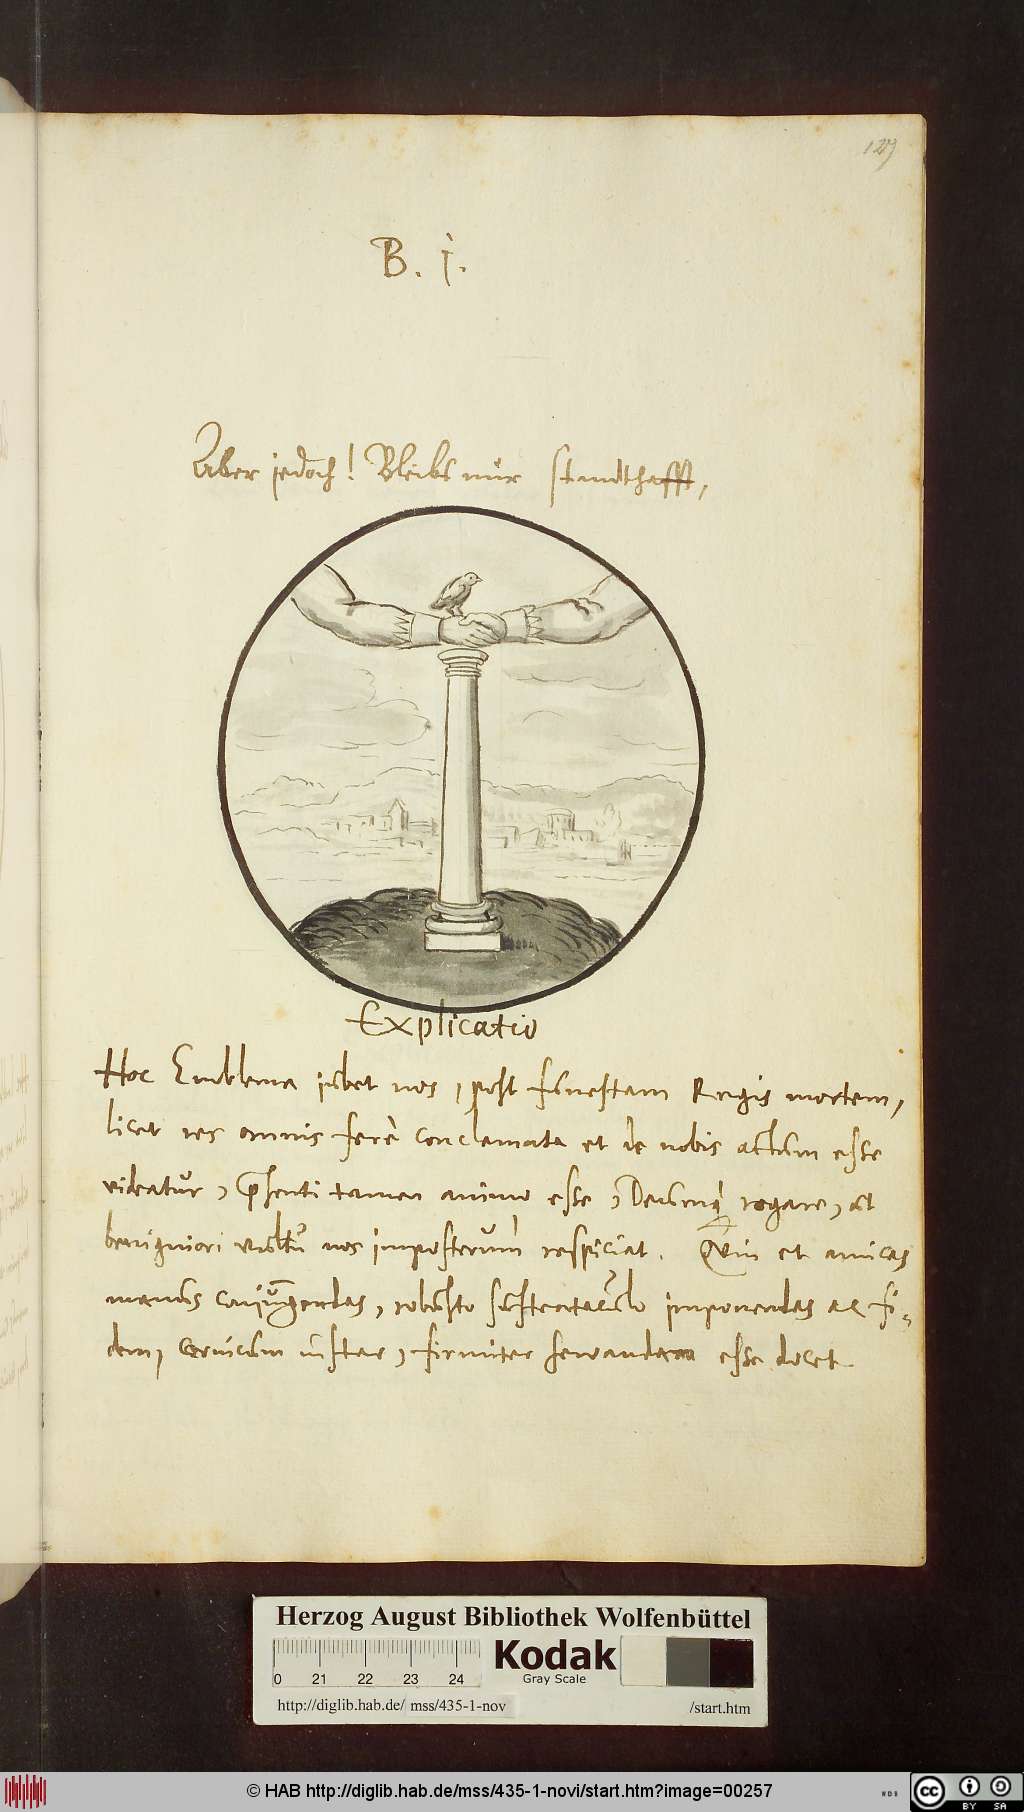 129
B. j.
Aber jedoch! Bleibt nur standthafft,
Explicatio
Hoc Emblema jubet nos, post funestam Regis mortem,
licet res omnis ferè conclamata et de nobis actum esse
videatur, p̄senti tamen animo esse, Deumq; rogare, ut
benigniori vultu nos imposterùm respiciat. Quin et amicas
manus conjungendas, robusto sustentaculo imponendas ac fi-
dem, instar, firmiter servandam esse docet.
Herzog August Bibliothek Wolfenbüttel
Kodak
Gray Scale
0 21 22 23 24
http://diglib.hab.de/ mss/435-1-nov /start.htm
© HAB http://diglib.hab.de/mss/435-1-novi/start.htm?image=00257
cc BY SA